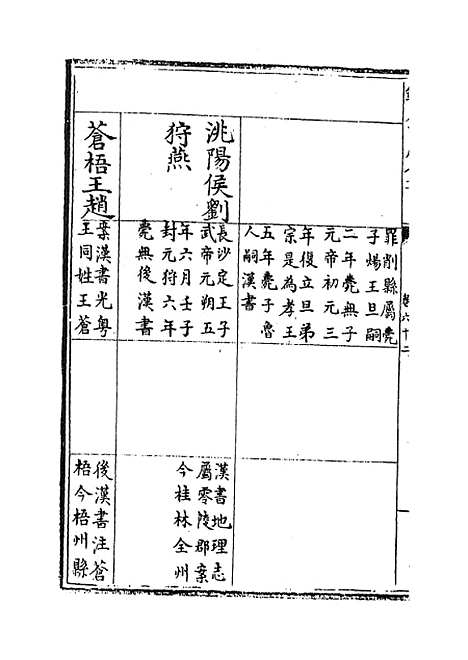 卷六十二
罪削縣屬薨
子煬王旦嗣
二年薨無子
元帝初元三
年復立旦弟
宗是為孝王
五年薨子魯
人嗣漢書
洮陽侯劉
狩燕
長沙定王子
武帝元朔五
年六月壬子
封元狩六年
薨無後漢書
漢書地理志
屬零陵郡案
今桂林全州
蒼梧王趙
案漢書光粵
王同姓王蒼
後漢書注蒼
梧今梧州縣